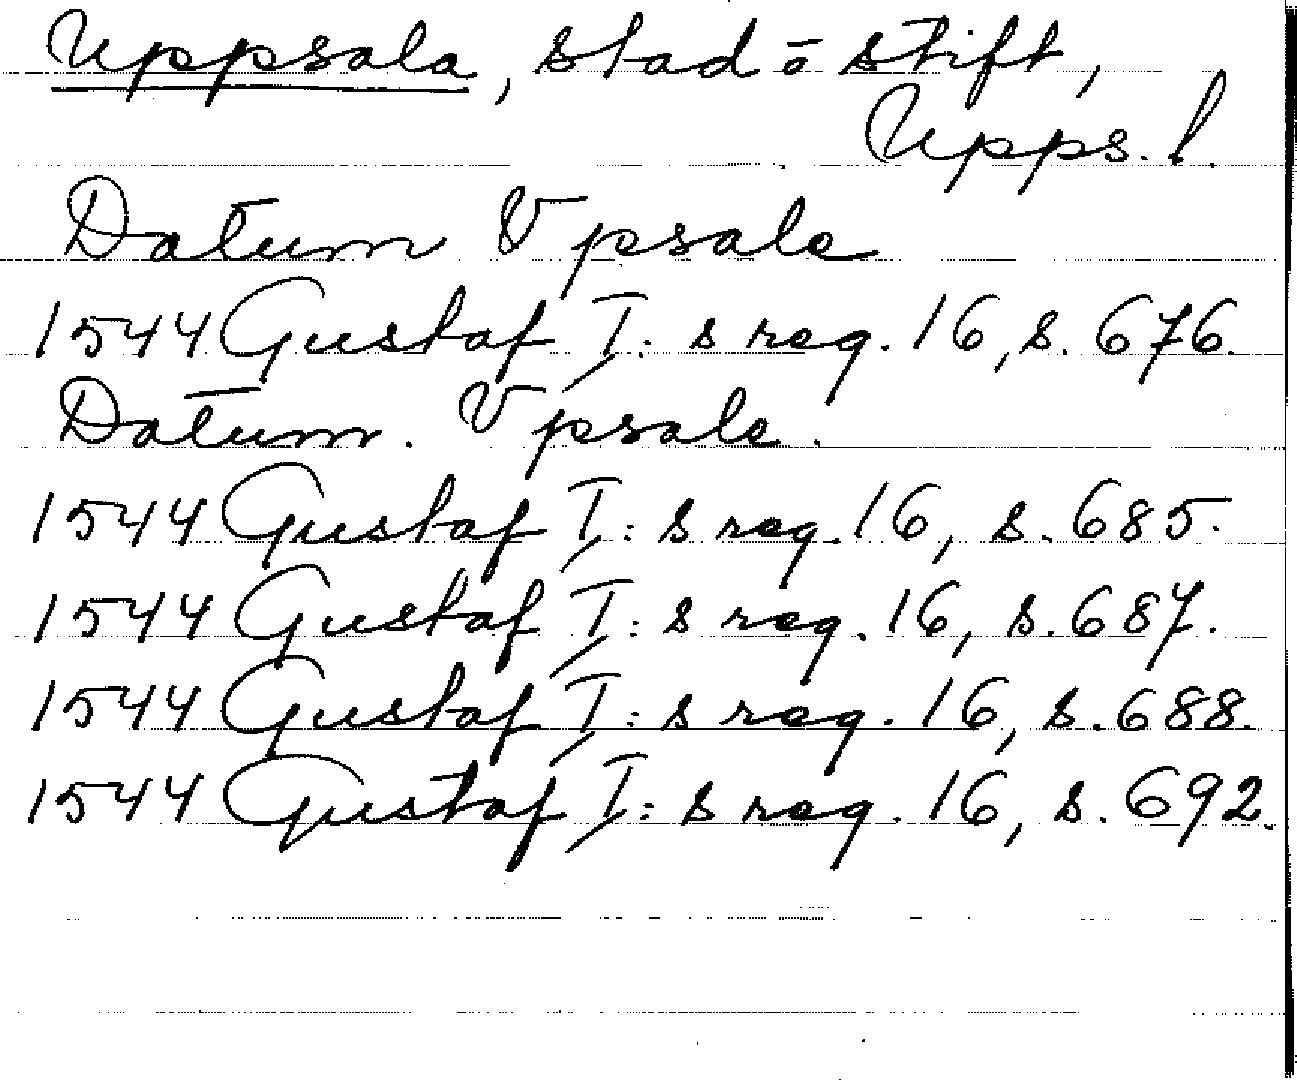 Uppsala, stad o stift,
Upps. l.
Datum Vpsale
1544 Gustaf I: s reg. 16, s. 676.
Datum. Vpsale.
1544 Gustaf I: s reg. 16, s. 685.
1544 Gustaf I: s reg. 16, s. 687.
1544 Gustaf I: s reg. 16, s. 688.
1544 Gustaf I: s reg. 16, s. 692.